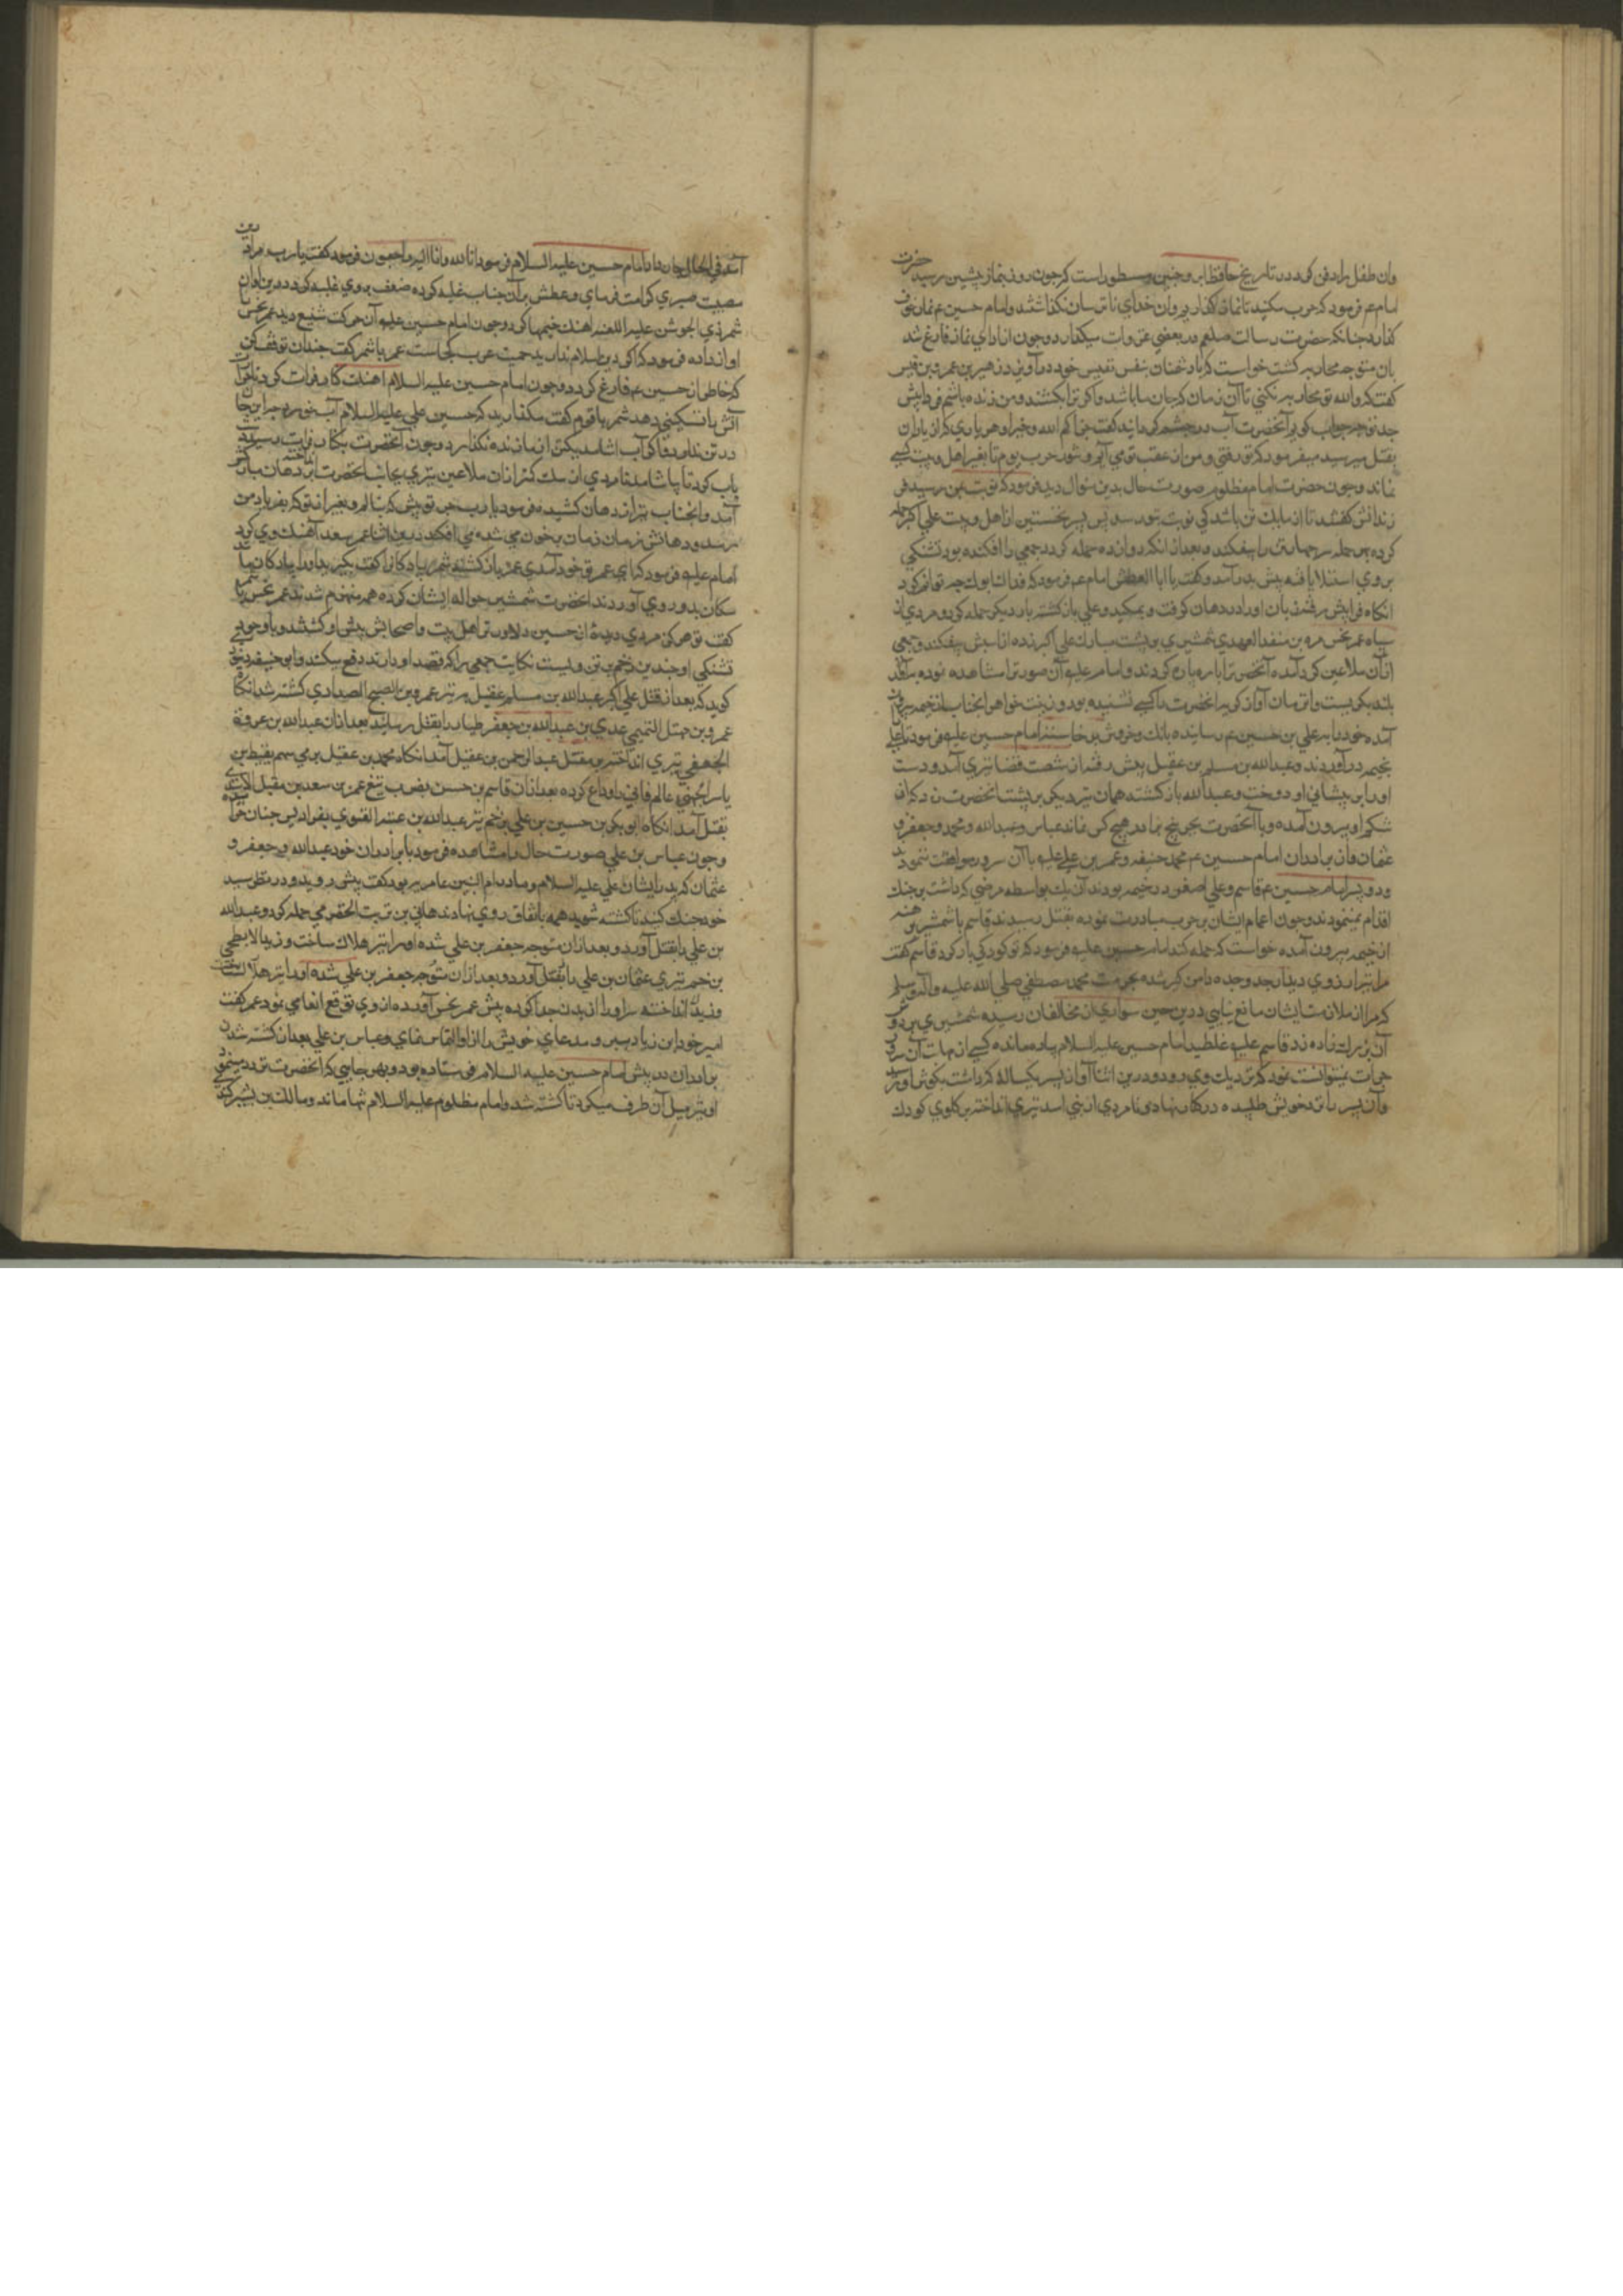 وان طفل را دفن کرد در تاریخ حافظ ابرو چنین مسطور است که چون روز بنماز پیشین رسید حضرت
امام ع فرمود که حرب مکنید تا نماز کذاریم وان خدای ناترسان نکذاشتند و امام حسین ع نماز خوف
کذارد چنانکه حضرت رسالت صلعم در بعضی غزوات میکذارد و چون از ادای نماز فارغ شد
بان متوجه محاربه کشت خواست که با دشمنان بنفس نفیس خود در آویزد زهیر بن عمر بن قیس
کفت که والله تو محاربه نکنی تا آن زمان که جان ما باشد واکر ترا بکشند و من زنده باشم فردا پیش
جد تو چه جواب کویم آنحضرت آب در چشم کردانید کفت جزاکم الله خیرا و هر یاری که از یاران
بقتل میرسید میفرمود که تو رفتی و من از عقب تو می آیم و شور حرب بود تا بغیر اهل بیت کسی
نماند و چون حضرت امام مظلوم صورت حال بدین منوال دید فرمود که نوبت بمن رسید فر
زندانش کفتند تا از ما یک تن باشد کی نوبت بتو رسد پس نخستین از اهل بیت علی اکبر حمله
کرده بهر حمله چهار تن را بیفکند و بعد از انکه دوازده حمله کرد و جمعی را افکنده بود تشنکی
بر وی استیلا یافته پیش پدر آمد و کفت یا ابا العطش امام ع فرمود که فداک ابوک چه توانم کرد
انکاه فرا پیش رفت زبان او در دهان کرفت و بمکید و علی باز کشته بار دیکر حمله کرد و مردی از
سپاه عمر نحس مره بن منقذ العبدی شمشیری بر پشت مبارک علی اکبر زده از اسبش بیفکند و جمعی
از آن ملاعین کرد آمده آنحضرت را پاره پاره کردند و امام علیه آن صورت را مشاهده نموده به آواز
بلند بکریست و تا آن زمان آواز کریه آنحضرت را کسی نشنیده بود و زینب خواهر آنجناب از خیمه بیرون
آمده خود را بر علی بن حسین ع رسانیده بانک و خروش بر خاست امام حسین علیه فرمود تا علی را
بخیمه در آوردند و عبدالله بن مسلم بن عقیل پیش رفته از شست قضا تیری آمد و دست
او را بر پیشانی او دوخت و عبدالله باز کشته همان تیر دیکر بر پشت آنحضرت زد که از
شکم او بیرون آمده و با آنحضرت بجز پنج برادر هیچ کس نماند عباس و عبدالله و محمد و جعفر و
عثمان و از برادران امام حسین ع محمد حنیفه و عمر بن علی علیه با آن سرور موافقت ننمودند
و دو پسر امام حسین ع قاسم و علی اصغر در خیمه بودند آن یک بواسطه مرضی که داشت بر جنک
اقدام نمینمود و چون اعمام ایشان بر حرب مبادرت نموده بقتل رسیدند قاسم با شمشیر برهنه
از خیمه بیرون آمده خواست که حمله کند امام حسین علیه فرمود که تو کودکی باز کرد قاسم کفت
مرا بتر از روی دیدار جد و جده دامن کیر شده بحرمت محمد مصطفی صلی الله علیه وآله وسلم
که مرا از ملاقات ایشان مانع نیایی درین حین سواری از مخالفان رسیده شمشیری بر دوش
آن بزرک زاده زد قاسم علیه غلطید امام حسین علیه السلام پیاده مانده کسی از مهابت آن سرور
جرات نمیتوانست نمود که نزدیک وی رود و درین اثنا آواز پسر یکساله که داشت بکوش او رسید
و آن پسر را نزد خویش طلبیده در کنار نهاد و نامردی از بنی اسد تیری انداخته بر کلوی کودک
آمد فی الحال جان داد امام حسین علیه السلام فرمود انا لله وانا الیه راجعون فرمود کفت یا رب مرا درین
مصیبت صبری کرامت فرمای و عطش بر آن جناب غلبه کرده ضعف بر وی غلبه کرد درین اوان
شمر ذی الجوشن علیه اللعنه اهنک خیمها کرد و چون امام حسین علیه آن حرکت شنیع دید عمر نحس را
آواز داده فرمود که اکر دین اسلام ندارید حمیت عرب کجاست عمر با شمر کفت چندان توقف کن
که خاطر از حسین ع فارغ کردد و چون امام حسین علیه السلام اهنک کنار فرات کرد تا حرارت
آتش را تسکینی دهد شمر با قوم کفت مکذارید که حسین علی علیه السلام آب خورد چه این جان
در تن ندارد و اکر آب اشامد یکی از ما زنده نکذارد و چون آنحضرت بکنار فرات رسید
آب کرد تا بیاشامد نامردی از سک کمتر از آن ملاعین تیری بجانب آنحضرت انداخته بر دهان مبارکش
آمد و آنجناب تیر از دهان کشیده فرمود یا رب جز تو پیش که نالم و بغیر از تو که بفریاد من
رسد و دهانش زمان زمان پر خون می شد می افکند درین اثنا عمر سعد آهنک وی کرد
امام علیه فرمود که ای عمر تو خود آمدی عمر باز کشته شمر پیادکانرا کفت بکیرید او را پیادکان ماند
سکان بدو روی آوردند انحضرت شمشیر حواله ایشان کرده همه منهزم شدند عمر نحس شمر را
کفت تو هرکز مردی دیدهٔ از حسین دلاورتر اهل بیت و اصحابش پیش او کشتند و با وجود
تشنکی او چندین زخم بر تن وی است نکایت جمعی را که قصد او دارند دفع میکند و ابو حنیفه دینوری
کوید که بعد از قتل علی اکبر عبدالله بن مسلم عقیل به تیر عمرو بن الصبح الصیداوی کشته شد انکاه
عمرو بن نهشل التمیمی عدی بن عبدالله بن جعفر طیار را بقتل رسانید بعد از آن عبدالله بن عروه
الجعفی تیری انداخته بر مقتل عبدالرحمن بن عقیل آمد انکاه محمد بن عقیل برمی سهم لقیط بن
یاسر الجهنی عالم فانی را وداع کرده بعد از آن قاسم بن حسن بضرب تیغ عمرو بن سعد بن مقبل الاسدی
بقتل آمد انکاه ابوبکر بن حسین بن علی بزخم تیر عبدالله بن عقبه الغنوی بفرادیس جنان خرامیده
و چون عباس بن علی صورت حال را مشاهده فرمود با برادران خود عبدالله و جعفر و
عثمان که پدر ایشان علی علیه السلام و مادر ام البنین عامریه بود کفت پیش روید و در نظر سید
خود جنک کنید تا کشته شوید همه باتفاق روی نهادند هانی بن ثبیت الحضرمی حمله کرد و عبدالله
بن علی را بقتل آورد و بعد از آن متوجه جعفر بن علی شده او را نیز هلاک ساخت و یزید الابطحی
بن خیمر تیری عثمان بن علی را بقتل آورد و بعد از آن متوجه جعفر بن علی شده او را نیز هلاک ساخت
و یزید انداخته سر او را از بدن جدا کرده پیش عمر نحس آورده از وی توقع انعامی نمود عمر کفت
امیر خود ابن زیاد ببر و مدعای خویش را از او التماس نمای و عباس بن علی بعد از کشته شدن
برادران در پیش امام حسین علیه السلام فرستاده بود و بهر جایی که انحضرت تردد مینمود
او نیز میل آن طرف میکرد تا کشته شد و امام مظلوم علیه السلام تنها ماند و مالک بن بشیر کندی